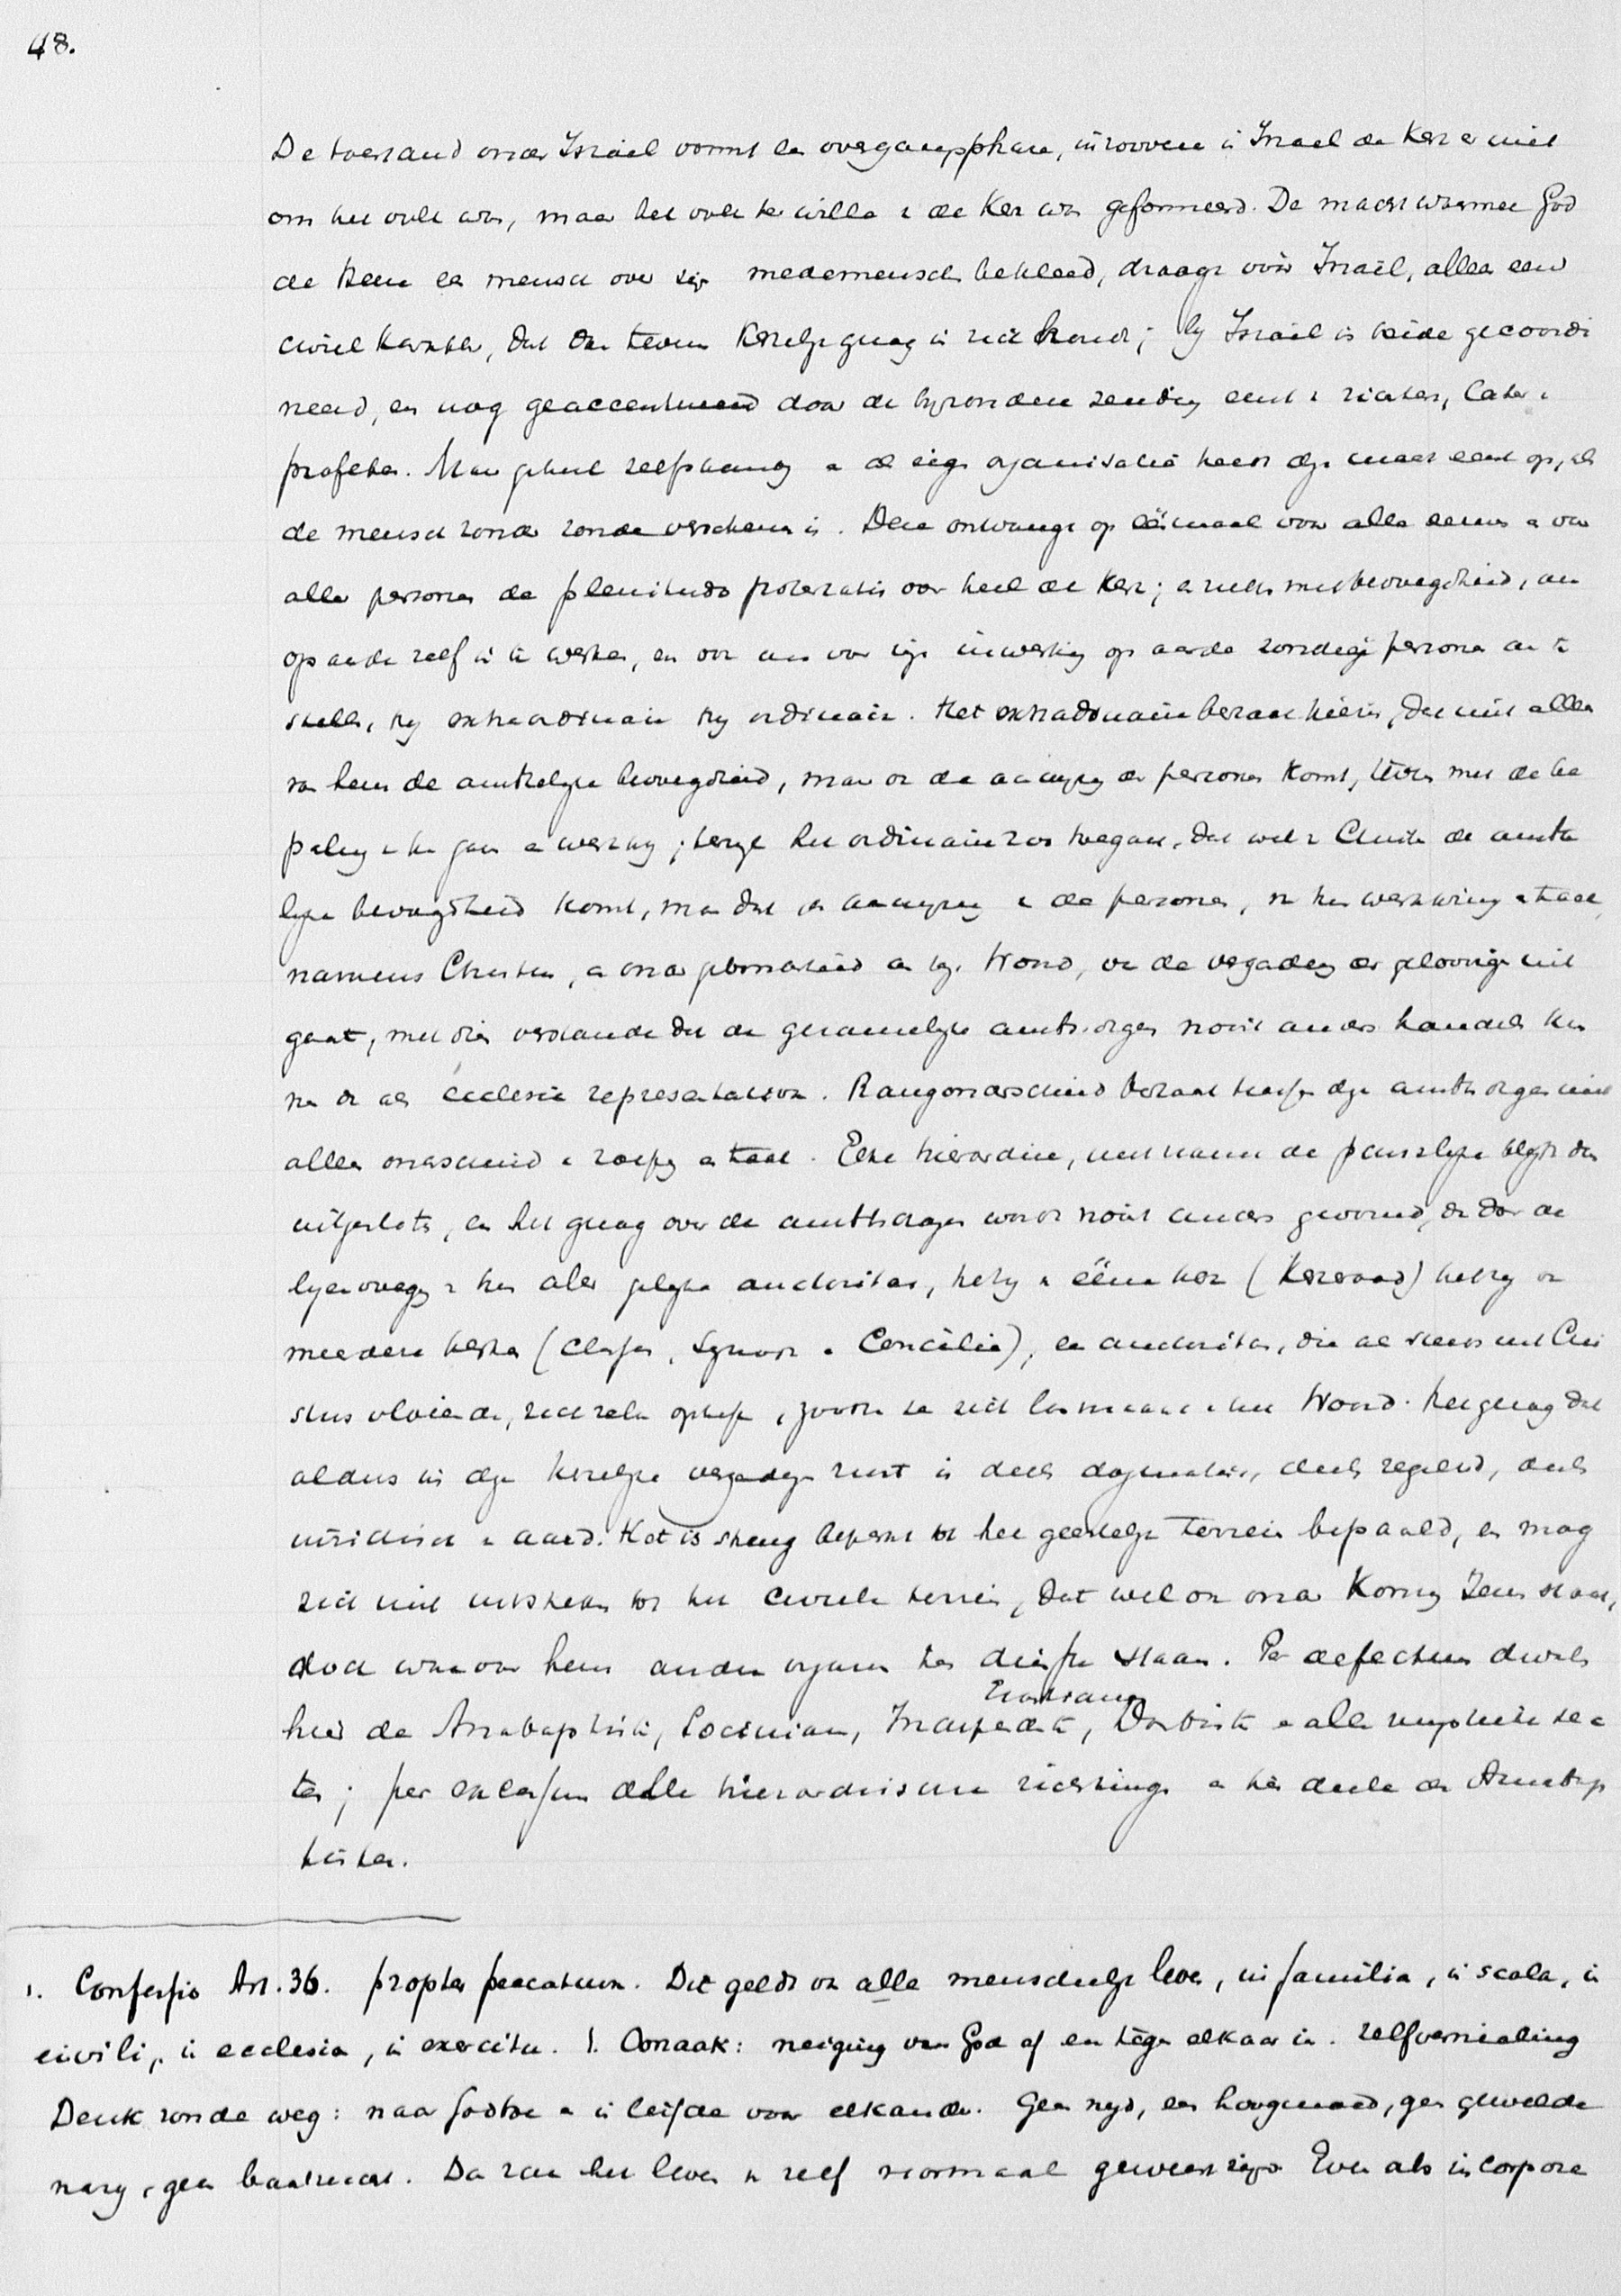 48.
De toestand onder Israël vormt een overgangsphase, in zooverre in Israel de Kerk er niet
om het volk was, maar het volk ter wille v. de Kerk was geformeerd. De macht waarmee God
de Heere een mensch over zijn medemensch bekleed, draagt vóór Israël, alleen een
civiel karakter, dat dan tevens Kerkelijk gezag in zich houdt; bij Israël is beide gecoördi
neerd, en nog geaccentueerd door de bijzondere zending eerst v. richters, later v.
profeten. Maar geheel zelfstandig in de eigen organisatie treedt dze macht eerst op, als
de mensch zonder zonde verschenen is. Deze ontvangt op éénmaal voor alle eeuwen en voor
alle personen de plenitudo potestatis over heel de Kerk; en zulks met bevoegdheid, om
op aarde zelf in te werken, en om voor zijn inwerking op aarde zondige personen aan te
stellen, hetzij extraordinair hetzij ordinair. Het extraordinaire bestaat hierin, dat niet alleen
van hem de ambtelijke bevoegdheid, maar ook de aanwijzing der personen komt, tevens met de be
paling v. hun gave en werking; terwijl het ordinaire zoo toegaat, dat wel v. Christus de ambte
lijke bevoegdheid komt, maar dat de aanwijzing v. de personen, v. hun werkkring en taak,
namens Christus, en onder gebondenheid aan zijn Woord, van de vergadering der geloovigen uit
gaat, met dien verstande dat de gezamenlijke ambtsdragers nooit anders handelen kun
nen dan als ecclesia repraesentativa. Rangonderscheid bestaat tusschen dze ambtsdragers niet
alleen onderscheid v. roeping en taak. Elke hierarchie, met name de pauselijke blijft dus
uitgesloten, en het gezag over de ambtsdragers wordt nooit anders gevoerd, dan door de
bijeenvoeging v. hun aller gelijke auctoritas, hetzij in ééne kerk (Kerkeraad) hetzij in
meerdere kerken (Classen, Synoden en Conciliën), een auctoritas, die als steeds uit Chri
stus vloeiende, zich zelve opheft, zoodra ze zich losmaakt v. het Woord. Het gezag dat
aldus in dze kerkelijke vergaderingen rust is deels dogmatisch, deels regelend, deels
juridisch v. aard. Het is streng beperkt tot het geestelijk terrein bepaald, en mag
zich niet uitstrekken tot het civiele terrein, dat wel ook onder Koning Jezus staat,
doch waarvoor hem andere organen ten dienste staan. Per defectum dwalen
Erastianen
hier de Anabaptisten, Socinianen, Independenten, Darbisten en alle mystieke sec
ten; per excessum alle hierarchische richtingen en ten deele de Anabap
tisten.
1. Confessio Art. 36. propter peccatum. Dit geldt van alle menschelijk leven, in familia, in scola, in
civili, in ecclesia, in exercitu. 1. Oorzaak: neiging van God af en tegen elkaar in. Zelfvernieling
Denk zonde weg: naar God toe en in liefde voor elkander. Geen nijd, geen hoogmoed, geen gewelde
narij, geen baatzucht. Dan zou het leven v. zelf normaal geweest zijn. Even als in corpore